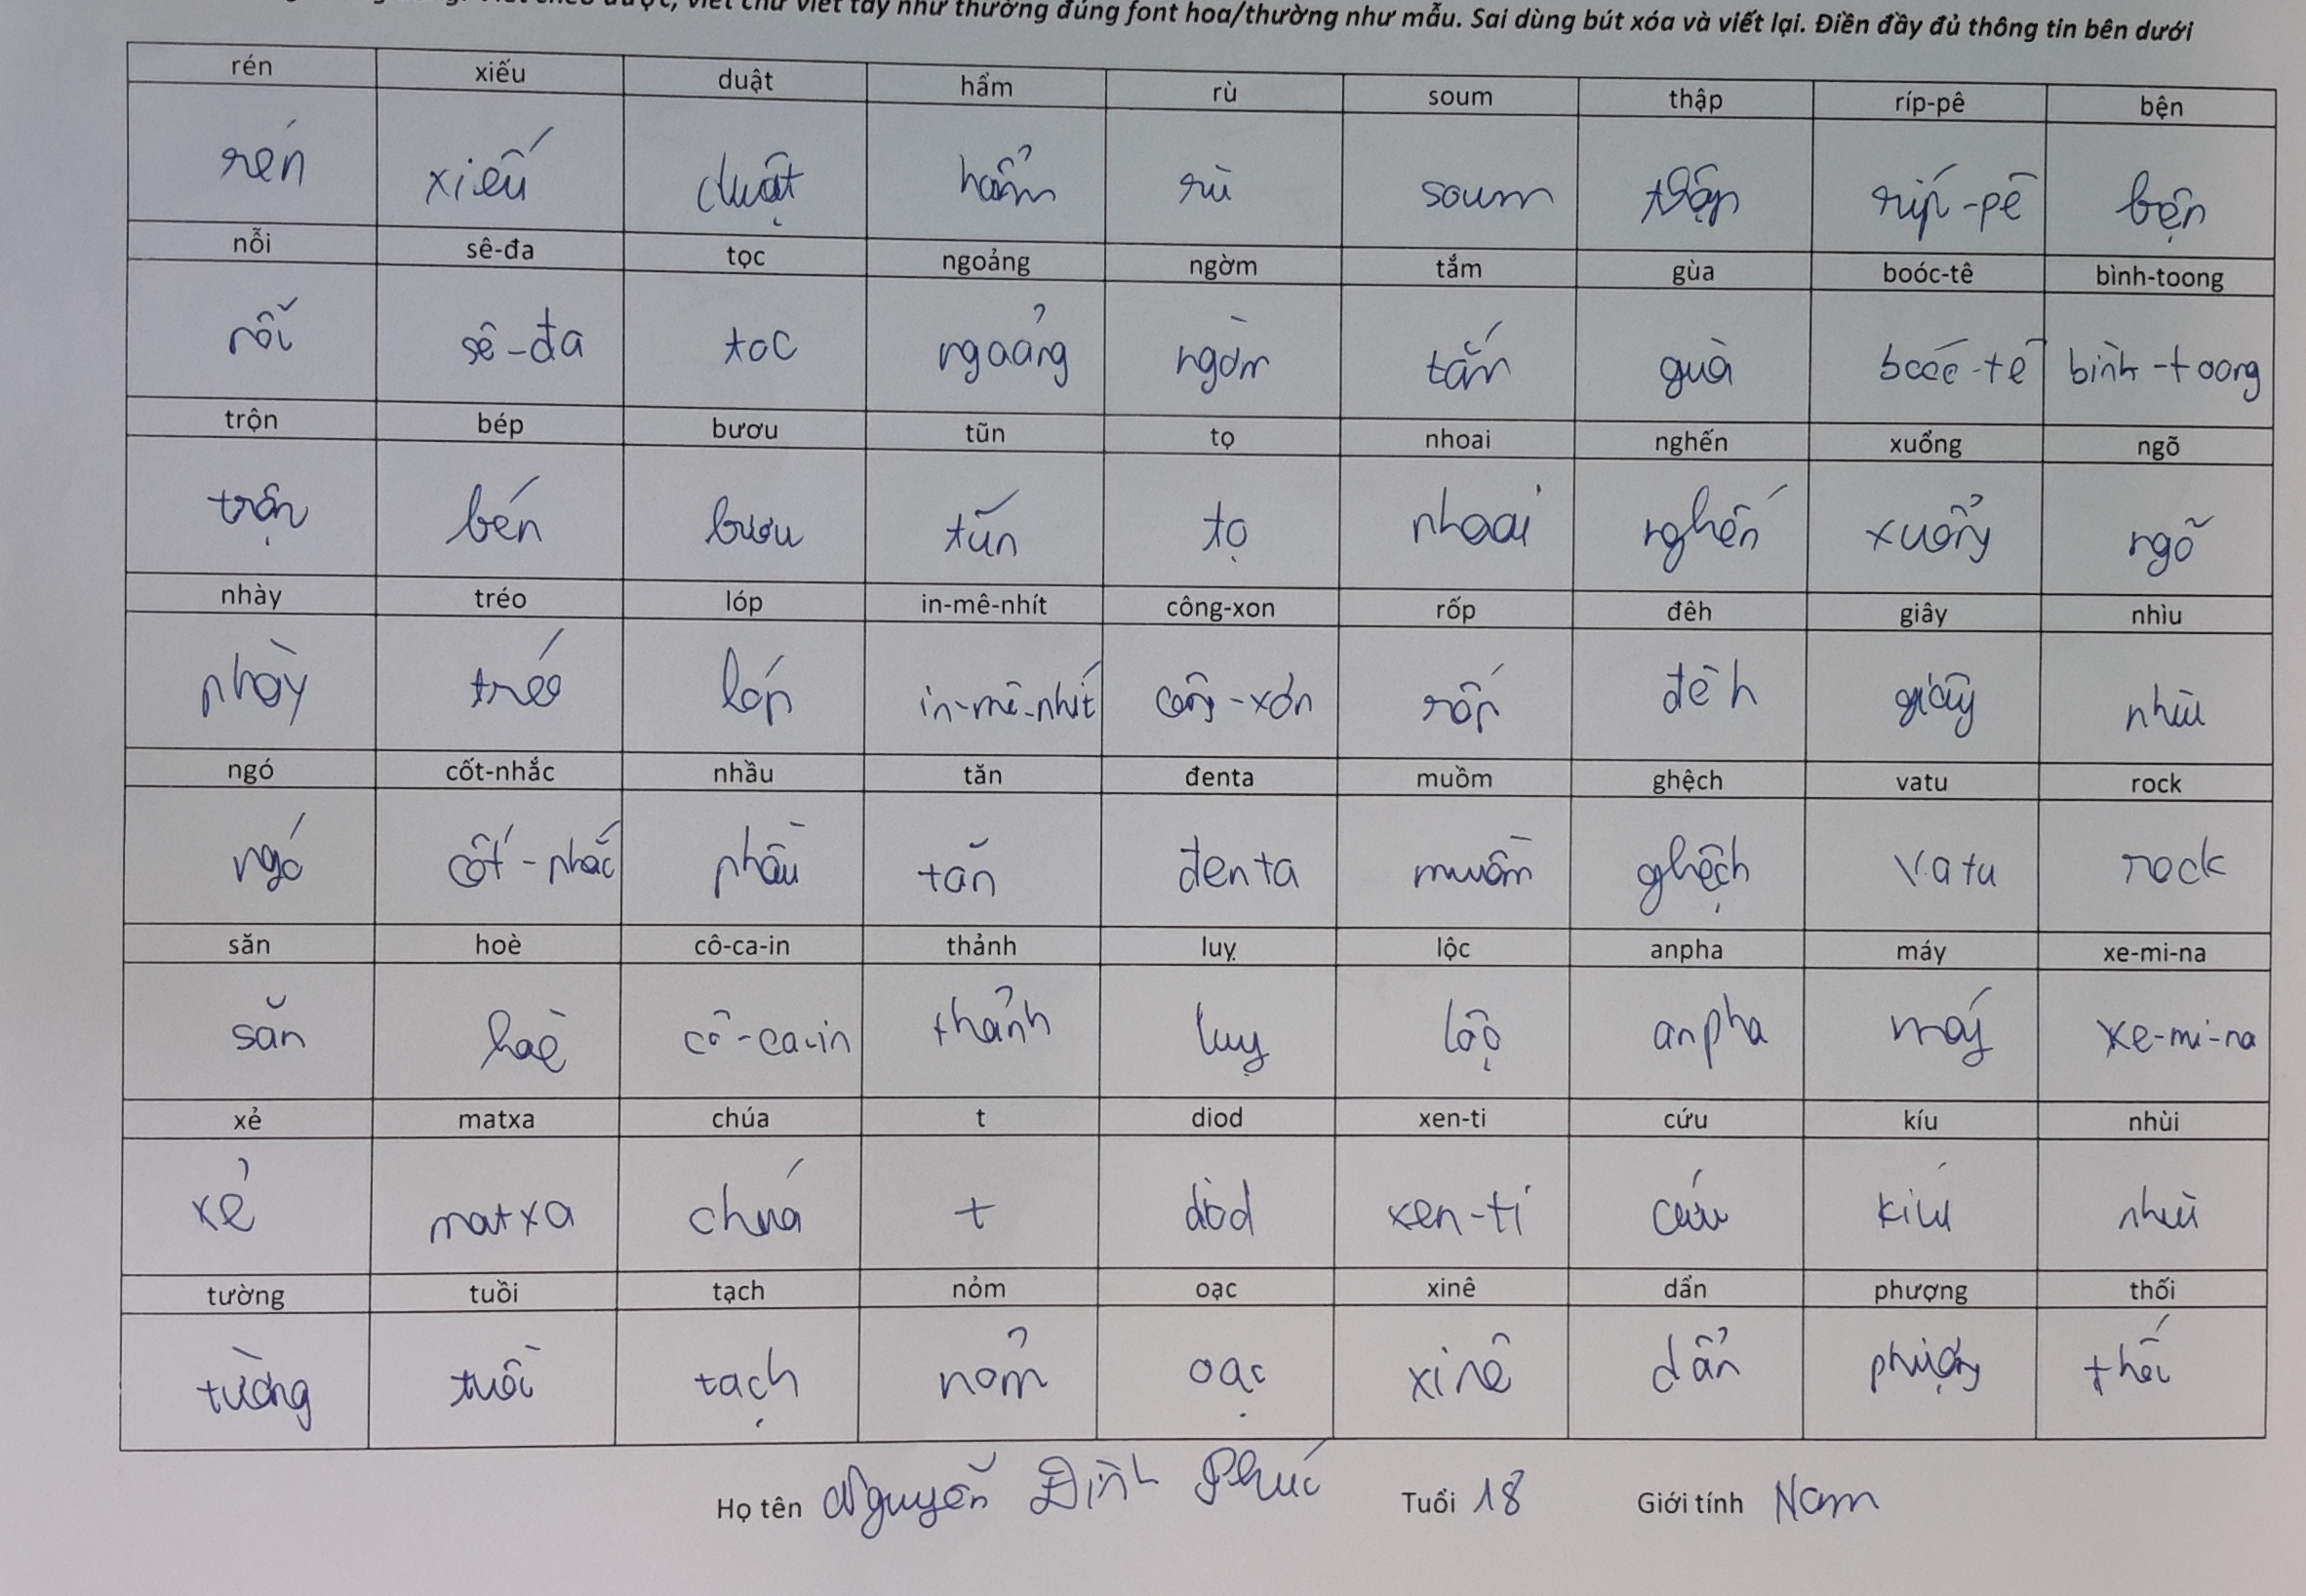 viết chữ viết tay như thường đúng font hoa/thường như mẫu. Sai dùng bút xóa và viết lại. Điền đầy đủ thông tin bên dưới
rén xiếu duật hẩm rù soum thập ríp-pê bện
rén xiếu duật hẩm rù soum thập ríp-pê bện
nỗi sê-đa tọc ngoảng ngờm tắm gùa boóc-tê bình-toong
nỗi sê-đa toc ngoảng ngờm tắm guà boóc-tê bình-toong
trộn bép bươu tũn tọ nhoai nghến xuổng ngõ
trộn bép bươu tũn tọ nhoai nghến xuổng ngõ
nhày tréo lóp in-mê-nhít công-xon rốp đêh giây nhìu
nhày tréo lóp in-mê-nhít công-xon rốp đêh giây nhìu
ngó cốt-nhắc nhầu tăn đenta muồm ghệch vatu rock
ngó cốt-nhắc nhầu tăn đenta muồm ghệch vatu rock
săn hoè cô-ca-in thảnh luỵ lộc anpha máy xe-mi-na
săn hoè cô-ca-in thảnh luỵ lộc anpha máy xe-mi-na
xẻ matxa chúa t diod xen-ti cứu kíu nhùi
xẻ matxa chúa t diod xen-ti cứu kíu nhùi
tường tuồi tạch nỏm oạc xinê dẩn phượng thối
tường tuồi tạch nỏm oạc xinê dẩn phượng thối
Họ tên Nguyễn Đình Phúc Tuổi 18 Giới tính Nam